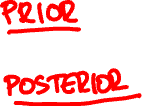 PRIOR
POSTERIOR